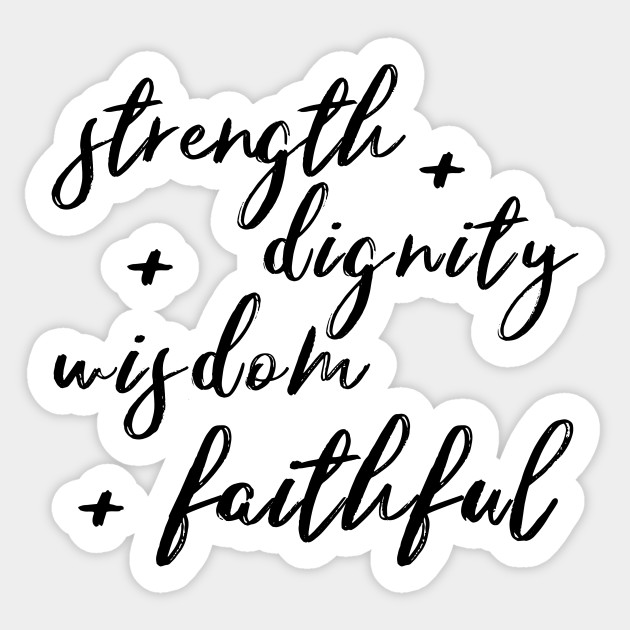 strength +
dignity
+
wisdom
+ faithful